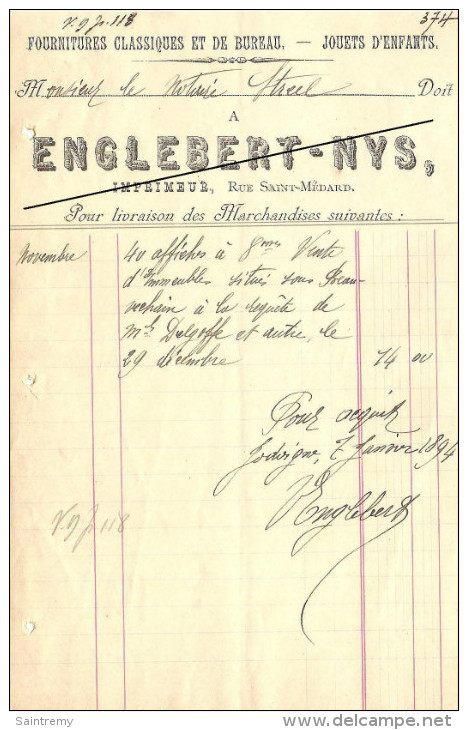 V. 9 J. 118
374
FOURNITURES CLASSIQUES ET DE BUREAU. — JOUETS D'ENFANTS.
Monsieur le Notaire Streel Doit
A
ENGLEBERT-NYS,
IMPRIMEUR, RUE SAINT-MÉDARD.
Pour livraison des Marchandises suivantes :
Novembre 40 affiches à 8 mes Vente
d'Immeubles situés sous
à la requête de
Delgoffe et autre, le
29 décembre 14 00
Pour acquit
Jodoigne, 7 Janvier 1894
Englebert
V. 9 J. 118
Saintremy
www.delcampe.net